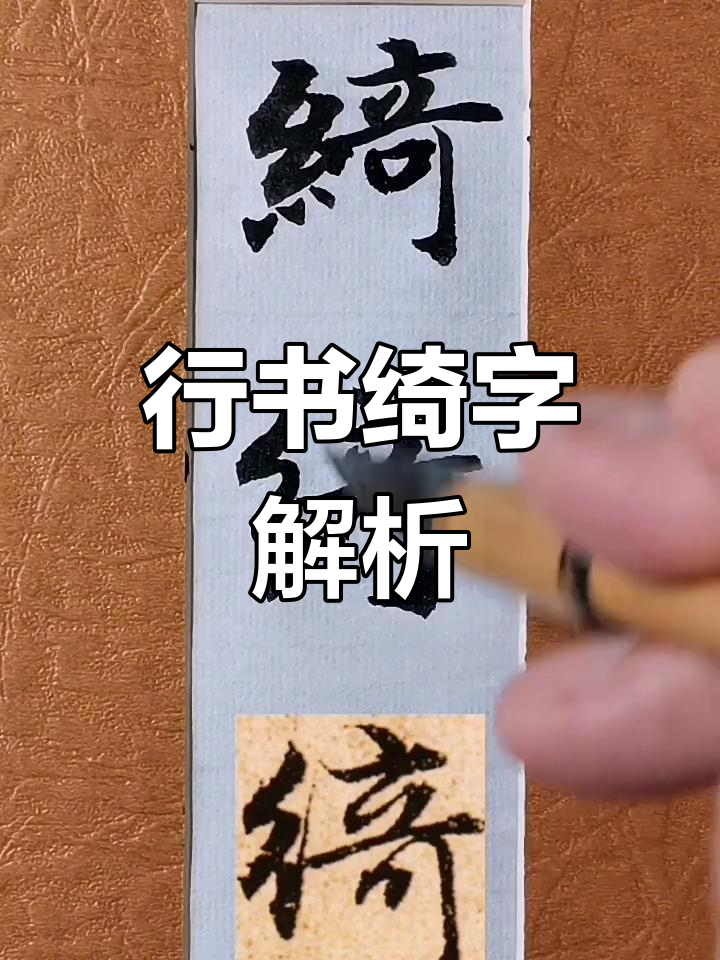 綺
行书绮字
解析
綺